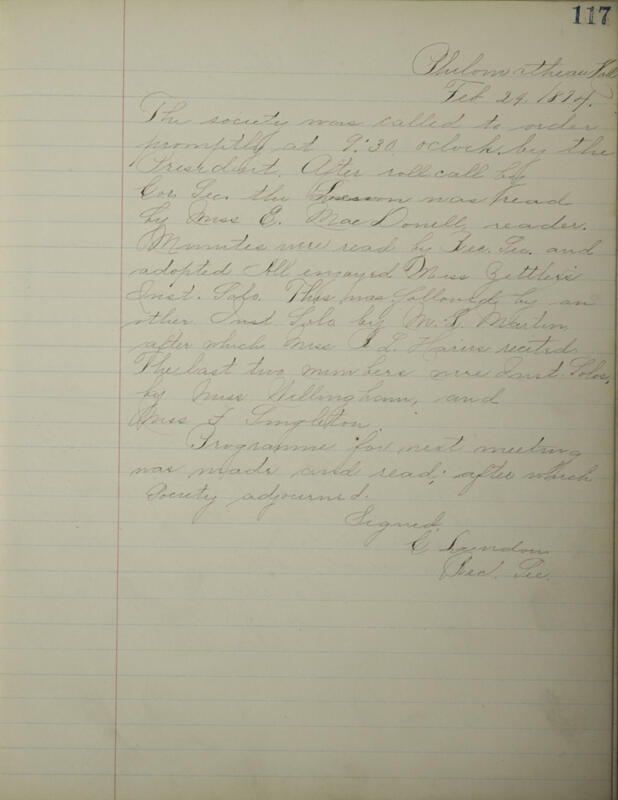 117
Philomathean Hall
Feb 24. 1894.
The society was called to order
promptly at 9:30 oclock by the
President. After roll call by
Cor. Sec. the Lesson was read
by Miss E. MacDonell, reader.
Minutes were read by Rec. Sec. and
adopted All enjoyed Miss Zettler's
Inst. Solo. This was followed by an
other Inst Solo by M. L. Martin
after which Miss L. Harris recited
The last two numbers were Inst. Solos,
by Miss Willingham, and
Miss F Singleton.
Programme for next meeting
was made and read; after which
Society adjourned.
Signed,
C
Rec. Sec.